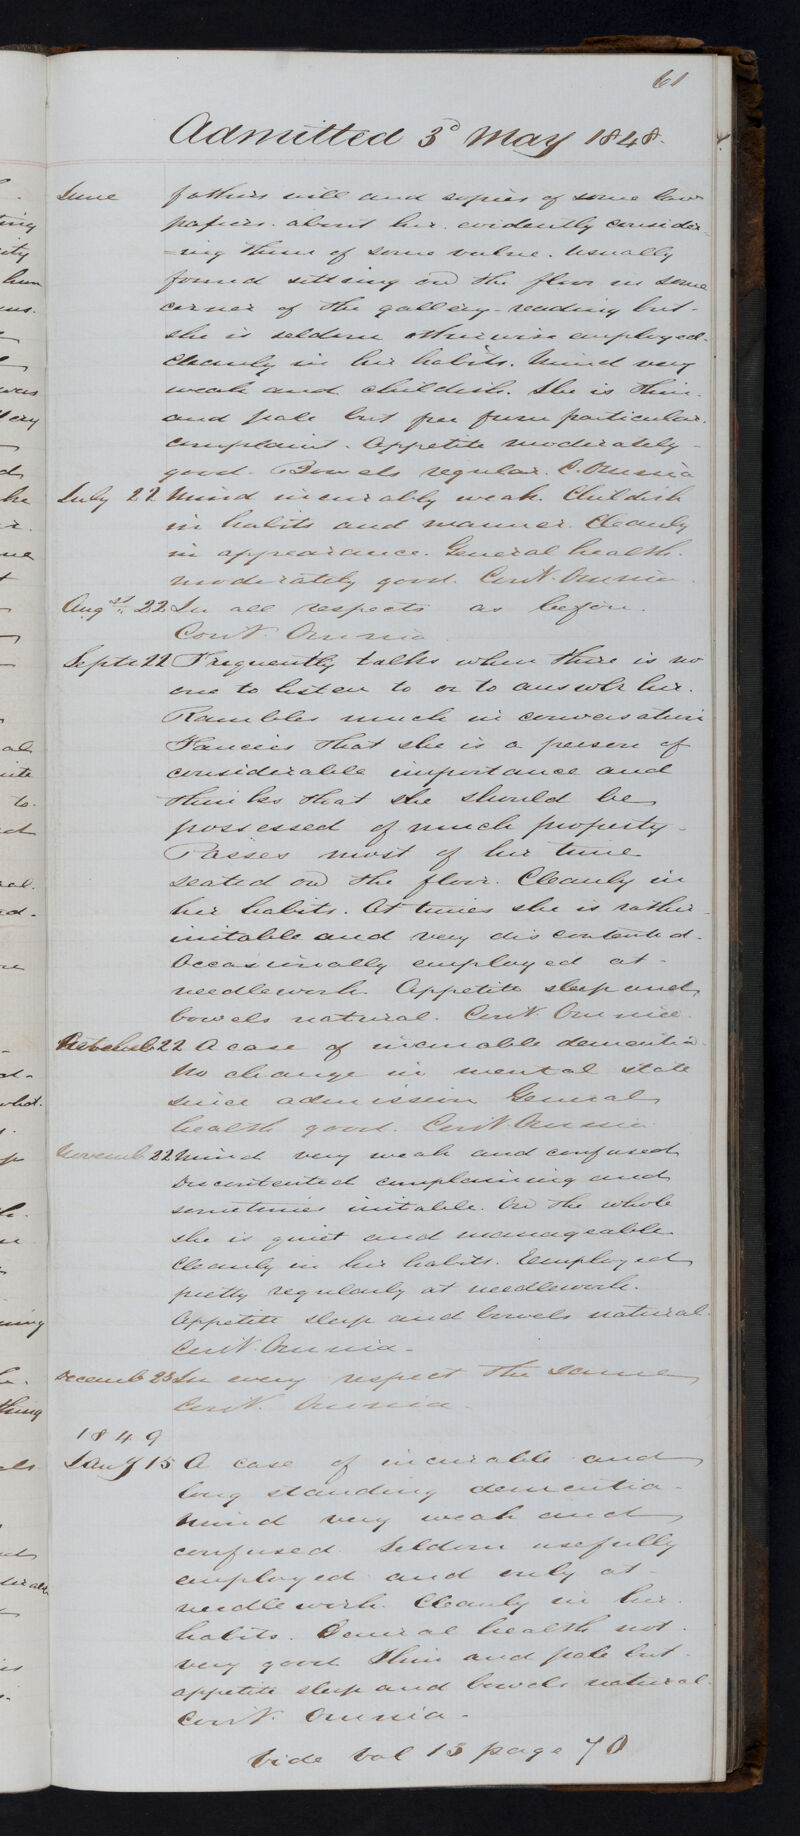 61
Admitted 3d May 1848.
June fathers will and copies of some law
papers about her evidently consider-
=ing them of some value. Usually
found sitting on the floor in some
corner of the gallery - reading but -
she is seldom otherwise employed -
Cleanly in her habits. Mind very
weak and childish. She is thin
and pale but free from particular
complaint. Appetite moderately
good. Bowels regular. C. Omnia
July 22 Mind incurably weak. Childish
in habits and manner. Cleanly
in appearance. General health
moderately good. Cont. Omnia.
Augst. 22 In all respects as before.
Cont. Omnia
Septr 22 Frequently talks when there is no
one to listen to or to answer her.
Rambles much in conversation
Fancies that she is a person of
considerable importance and
thinks that she should be
possessed of much property -
Passes most of her time
seated on the floor. Cleanly in
her habits. At times she is rather
irritable and very discontented -
Occasionally employed at -
needlework. Appetite sleep and
bowels natural. Cont. Omnia.
22 A case of incurable dementia
No change in mental state
since admission General
health good. Cont. Omnia
Novemb 22 Mind very weak and confused
Discontented complaining and
sometimes irritable. On the whole
she is quiet and manageable
Cleanly in her habits. Employed
pretty regularly at needlework.
Appetite sleep and bowels natural.
Cont. Omnia -
Decemb 23 In every respect the same
Cont. Omnia
1849
Jany 15 A case of incurable and
long standing dementia -
Mind very weak and
confused Seldom usefully
employed and only at -
needlework. Cleanly in her
habits. General health not
very good Thin and pale but -
appetite sleep and bowels natural.
Cont. Omnia -
Vide Vol 13 page 70